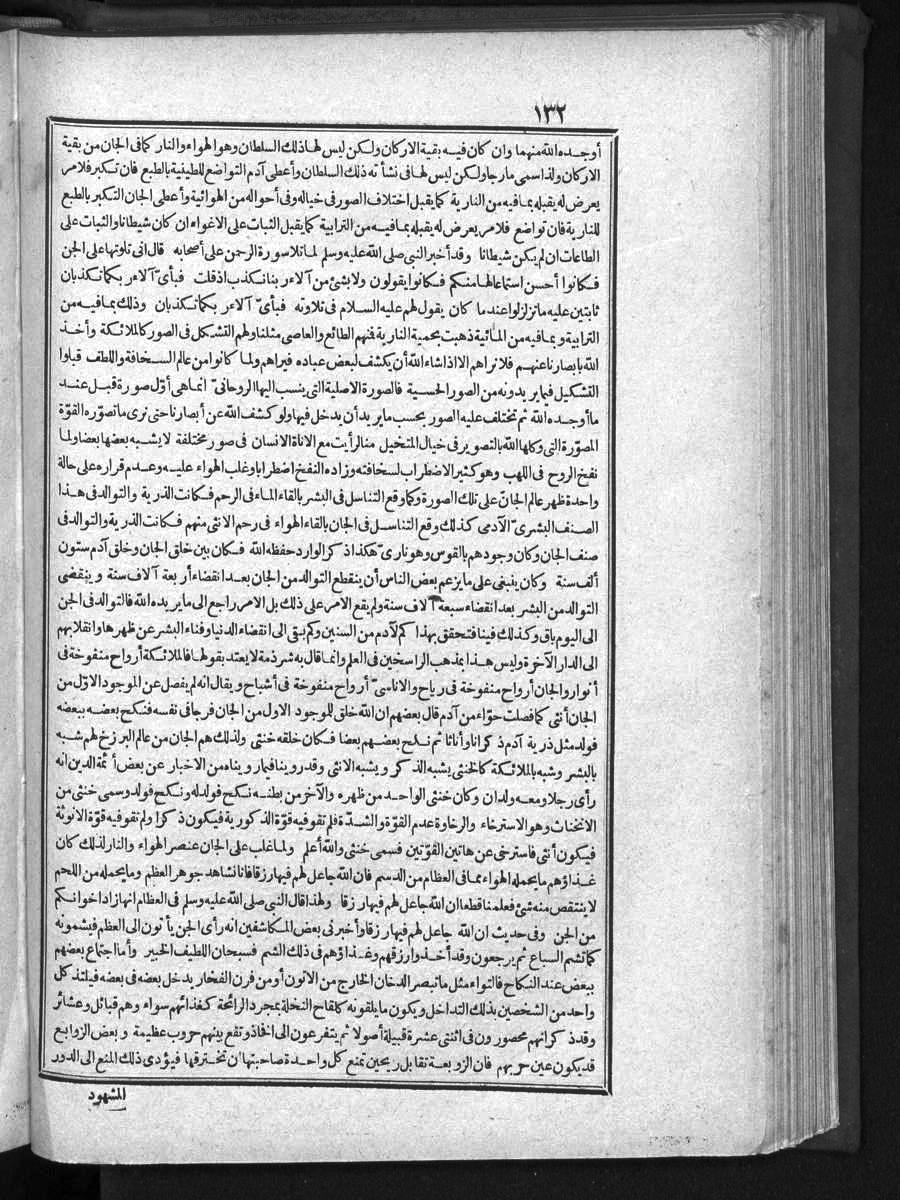 ١٣٢
أوجده الله منهما وان كان فيه بقية الاركان ولكن ليس لها ذلك السلطان وهو الهواء والنار كما فى الجان من بقية
الاركان ولذا سمى مارجا ولكن ليس لها فى نشأته ذلك السلطان وأعطى آدم التواضع للطينية بالطبع فان تكبر فلامر
يعرض له يقبله بما فيه من النارية كما يقبل اختلاف الصور فى خياله وفى أحواله من الهوائية وأعطى الجان التكبر بالطبع
للنارية فان تواضع فلامر يعرض له يقبله بما فيه من الترابية كما يقبل الثبات على الاغواء ان كان شيطانا والثبات على
الطاعات ان لم يكن شيطانا وقد أخبر النبى صلى الله عليه وسلم لما تلا سورة الرحمن على أصحابه قال انى تلوتها على الجن
فكانوا أحسن استماعا لها منكم فكانوا يقولون ولا بشئ من آلاء ربنا نكذب اذ قلت فبأىّ آلاء ربكما تكذبان
ثابتين عليه ما تزلزلوا عند ما كان يقول لهم عليه السلام فى تلاوته فبأىّ آلاء ربكما تكذبان وذلك بما فيه من
الترابية وبما فيه من المائية ذهبت بحمية النارية فمنهم الطائع والعاصى مثلنا ولهم التشكل فى الصور كالملائكة وأخذ
الله بابصارنا عنهم فلا نراهم الا اذا شاء الله أن يكشف لبعض عباده فيراهم ولما كانوا من عالم السخافة واللطف قبلوا
التشكيل فيما يريدونه من الصور الحسية فالصورة الاصلية التى ينسب اليها الروحانىّ انما هى أوّل صورة قبل عند
ما أوجده الله ثم تختلف عليه الصور بحسب ما يريد أن يدخل فيها ولو كشف الله عن أبصارنا حتى نرى ما تصوّره القوّة
المصوّرة التى وكلها الله بالتصوير فى خيال المتخيل منا لرأيت مع الاناة الانسان فى صور مختلفة لا يشبه بعضها بعضا ولما
نفخ الروح فى اللهب وهو كثير الاضطراب لسخافته وزاده النفخ اضطرابا وغلب الهواء عليه وعدم قراره على حالة
واحدة ظهر عالم الجانّ على تلك الصورة وكما وقع التناسل فى البشر بالقاء الماء فى الرحم فكانت الذرية والتوالد فى هذا
الصنف البشرىّ الآدمى كذلك وقع التناسل فى الجان بالقاء الهواء فى رحم الانثى منهم فكانت الذرية والتوالد فى
صنف الجان وكان وجودهم بالقوس وهو نارىّ هكذا ذكر الوارد حفظه الله فكان بين خلق الجان وخلق آدم ستون
ألف سنة وكان ينبغى على ما يزعم بعض الناس أن ينقطع التوالد من الجان بعد انقضاء أربعة آلاف سنة وينقضى
التوالد من البشر بعد انقضاء سبعة آلاف سنة ولم يقع الامر على ذلك بل الامر راجع الى ما يريده الله فالتوالد فى الجن
الى اليوم باق وكذلك فينا فتحقق بهذا كم لآدم من السنين وكم بقى الى انقضاء الدنيا وفناء البشر عن ظهرها وانقلابهم
الى الدار الآخرة وليس هذا بمذهب الراسخين فى العلم وانما قال به شرذمة لا يعتد بقولها فالملائكة أرواح منفوخة فى
أنوار والجان أرواح منفوخة فى رياح والاناسىّ أرواح منفوخة فى أشباح ويقال انه لم يفصل عن الموجود الاوّل من
الجان أنثى كما فصلت حوّاء من آدم قال بعضهم ان الله خلق للموجود الاول من الجان فرجا فى نفسه فنكح بعضه ببعضه
فولد مثل ذرية آدم ذكرانا وأناثا ثم نكح بعضهم بعضا فكان خلقه خنثى ولذلك هم الجان من عالم البرزخ لهم شبه
بالبشر وشبه بالملائكة كالخنثى يشبه الذكر ويشبه الانثى وقد روينا فيما رويناه من الاخبار عن بعض أئمة الدين انه
رأى رجلا ومعه ولدان وكان خنثى الواحد من ظهره والآخر من بطنه نكح فولد له ونكح فولد وسمى خنثى من
الانخناث وهو الاسترخاء والرخاوة عدم القوّة والشدّة فلم تقو فيه قوّة الذكورية فيكون ذكرا ولم تقو فيه قوّة الانوثة
فيكون أنثى فاسترخى عن هاتين القوّتين فسمى خنثى والله أعلم ولما غلب على الجان عنصر الهواء والنار لذلك كان
غذاؤهم ما يحمله الهواء مما فى العظام من الدسم فان الله جاعل لهم فيها رزقا فانا نشاهد جوهر العظم وما يحمله من اللحم
لا ينتقص منه شئ فعلمنا قطعا ان الله جاعل لهم فيها رزقا ولهذا قال النبى صلى الله عليه وسلم فى العظام انها زاد اخوانكم
من الجن وفى حديث ان الله جاعل لهم فيها رزقا وأخبرنى بعض المكاشفين انه رأى الجن يأتون الى العظم فيشمونه
كما تشم السباع ثم يرجعون وقد أخذوا رزقهم وغذاؤهم فى ذلك الشم فسبحان اللطيف الخبير وأما اجتماع بعضهم
ببعض عند النكاح فالتواء مثل ما تبصر الدخان الخارج من الاتون أو من فرن الفخار يدخل بعضه فى بعضه فيلتذ كل
واحد من الشخصين بذلك التداخل ويكون ما يلقونه كلقاح النخلة بمجرد الرائحة كغذائهم سواء وهم قبائل وعشائر
وقد ذكر انهم محصورون فى اثنتى عشرة قبيلة أصولا ثم يتفرعون الى افخاذ وتقع بينهم حروب عظيمة وبعض الزوابع
قد يكون عين حربهم فان الزوبعة تقابل ريحين تمنع كل واحدة صاحبتها ان تخترقها فيؤدى ذلك المنع الى الدور
المشهود